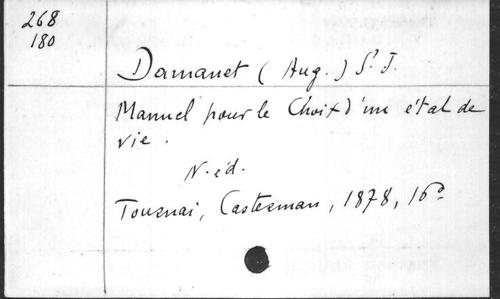 268
180
Damanet (Aug.) S. J.
Manuel pour le Choix d'un état de
vie.
N. éd.
Tournai, Casterman, 1878, 16°